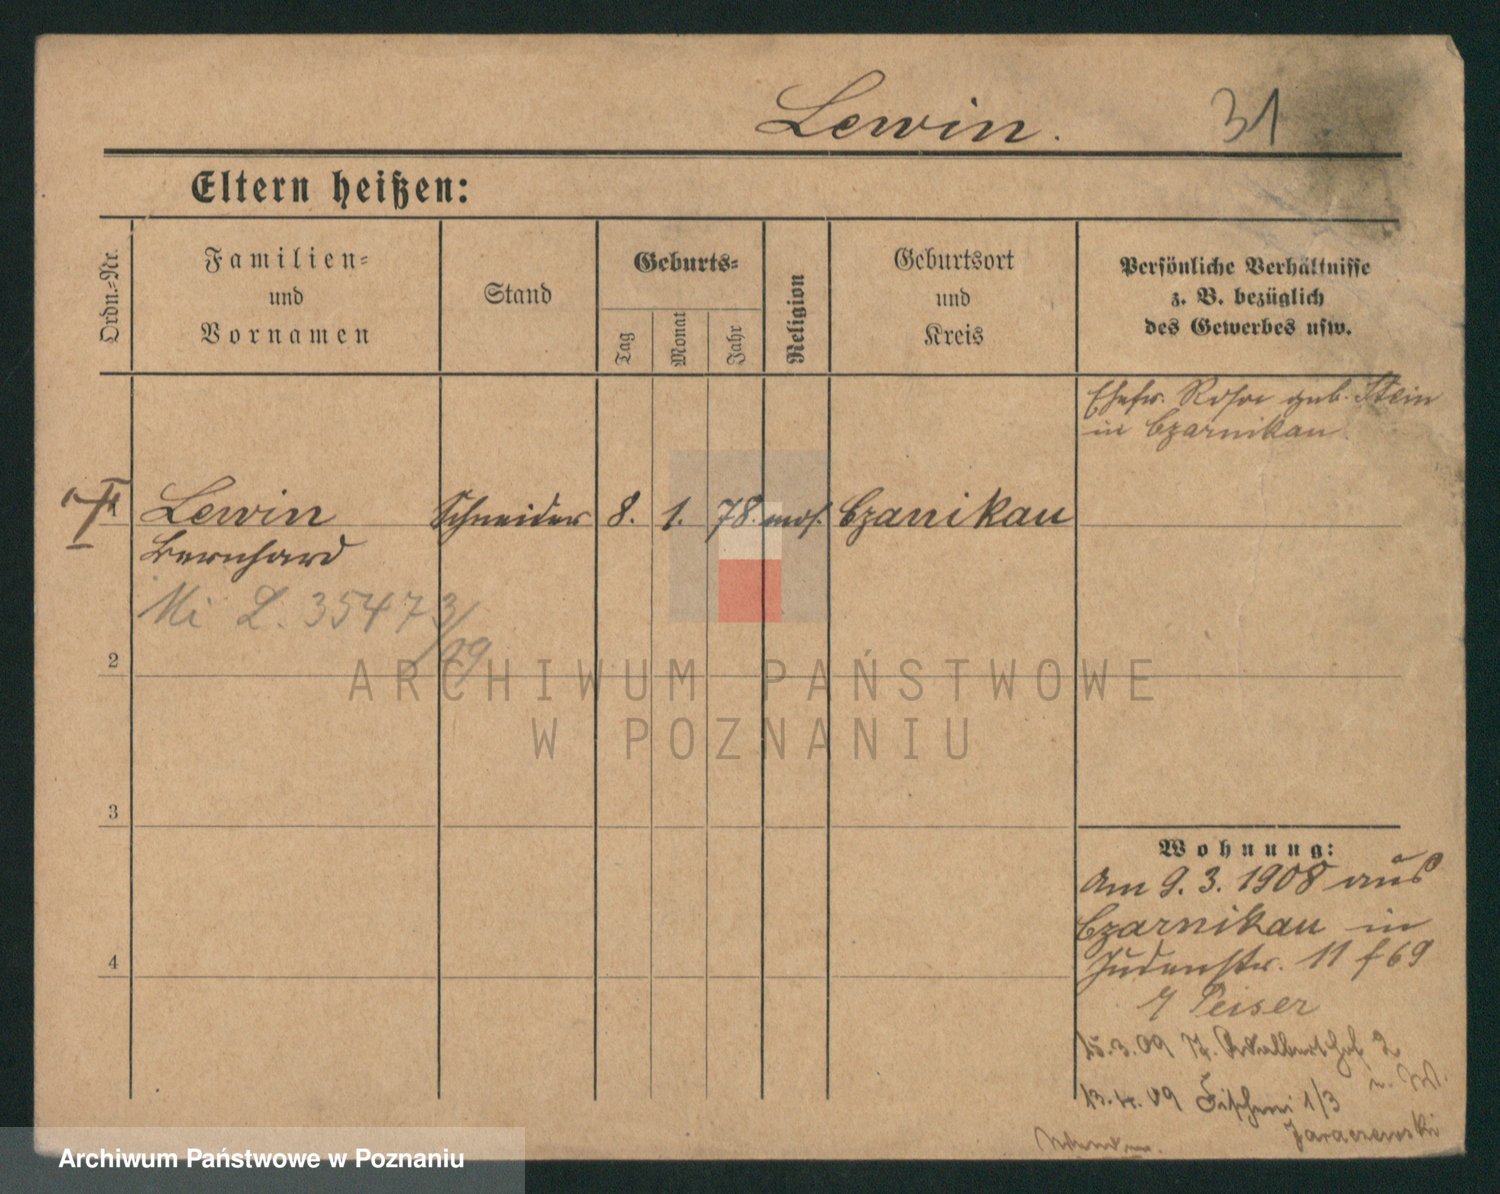 Lewin. 31
Eltern heißen:
Ordn.=Nr.
Familien=
und
Vornamen
Stand
Geburts=
Tag
Monat
Jahr
Religion
Geburtsort
und
Kreis
Persönliche Verhältnisse
z. B. bezüglich
des Gewerbes usw.
Ehefr. Rosa geb. Stein
in Czarnikau
Lewin Schneider 8. 1. 78. mos. Czarnikau
Bernhard
Mi L. 35473/09
2
3
4
Wohnung:
Am 9. 3. 1908 aus
Czarnikau in
Judenstr. 11 f 69
Peiser
15.3.09 St. Adalberthof 2
13.4.09 Fischerei 1/3
Jaraczewski
ARCHIWUM PAŃSTWOWE
W POZNANIU
Archiwum Państwowe w Poznaniu